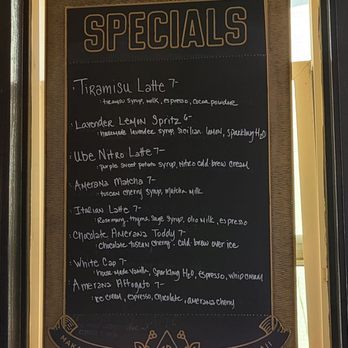 SPECIALS
· Tiramisu Latte 7-
· tiramisu syrup, milk, espresso, cocoa powder
· Lavender Lemon Spritz 6-
· homemade lavender syrup, Sicilian lemon, sparkling H2O
· Ube Nitro Latte 7-
· purple sweet potato syrup, nitro cold brew cream
· Amerana Matcha 7-
· tuscan cherry syrup, matcha milk
· Italian Latte 7-
· Rosemary, thyme, sage syrup, oliomilk, espresso
· Chocolate Amerana Toddy 7-
· Chocolate tuscan cherry, cold brew over ice
· White Cap 7-
· house made vanilla, sparkling H2O, espresso, whip cream
· Amerana Affogato 7-
· ice cream, espresso, chocolate, amerana cherry